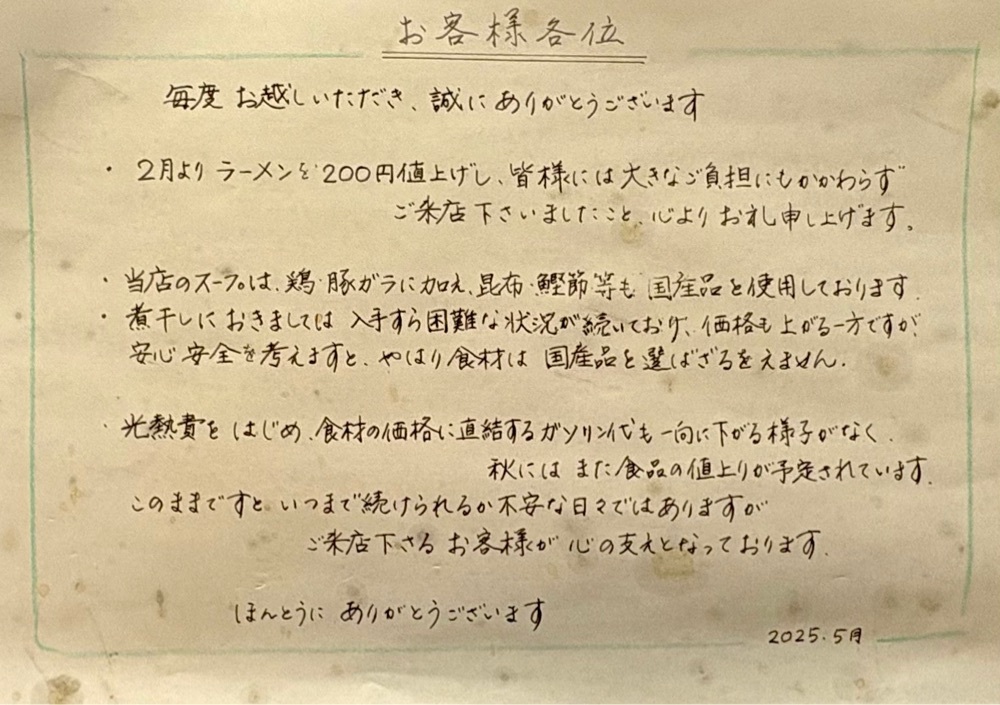 お客様各位
毎度 お越しいただき、誠に ありがとうございます
・ 2月より ラーメンを 200円値上げし、皆様には 大きなご負担にもかかわらず
ご来店下さいましたこと、心より お礼申し上げます。
・ 当店のスープは、鶏・豚ガラに加え、昆布・鰹節等も 国産品を使用しております.
・ 煮干しに おきましては 入手すら困難な状況が続いており、価格も上がる一方ですが、
安心安全を考えますと、やはり食材は 国産品を選ばざるをえません.
・ 光熱費を はじめ、食材の価格に直結するガソリン代も一向に下がる様子がなく、
秋には また食品の値上りが予定されています.
このままですと いつまで続けられるか不安な日々ではありますが
ご来店下さる お客様が 心の支えとなっております.
ほんとうに ありがとうございます
2025.5月